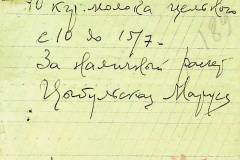 70 кгр. молока цельного
с 10 до 15/7.
За наличный расчет
Цыбульская Маруся